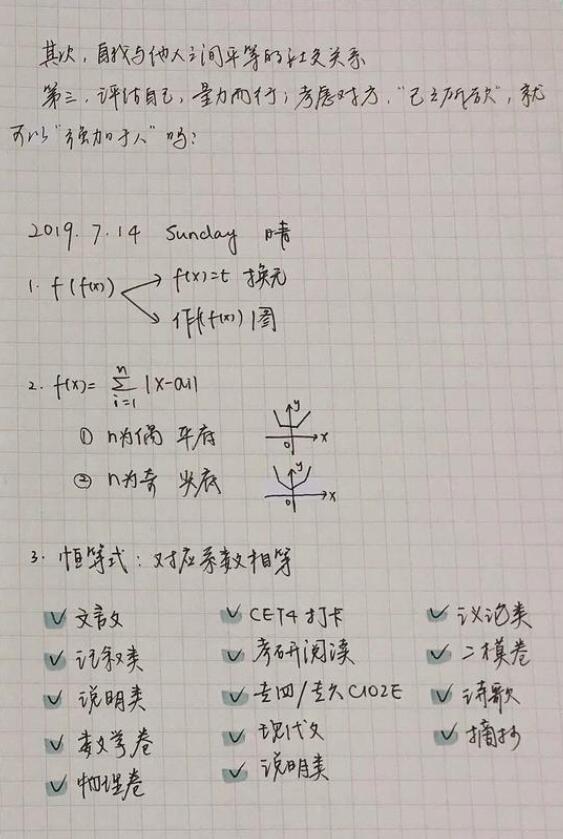 其次，自我与他人之间平等的社交关系
第三，评估自己，量力而行；考虑对方，“己之所欲”，就
可以“强加于人”吗？
2019.7.14 Sunday 晴
1. f(f(x)) f(x)=t 换元
作f(f(x))图
2. f(x)= n∑i=1 |x-ai|
① n为偶 平底 y 0 x
② n为奇 尖底 y 0 x
3. 恒等式：对应系数相等
文言文 CET4打卡 议论类
记叙类 考研阅读 二模卷
说明类 专四/专八CLOZE 诗歌
数学卷 现代文 摘抄
物理卷 说明类